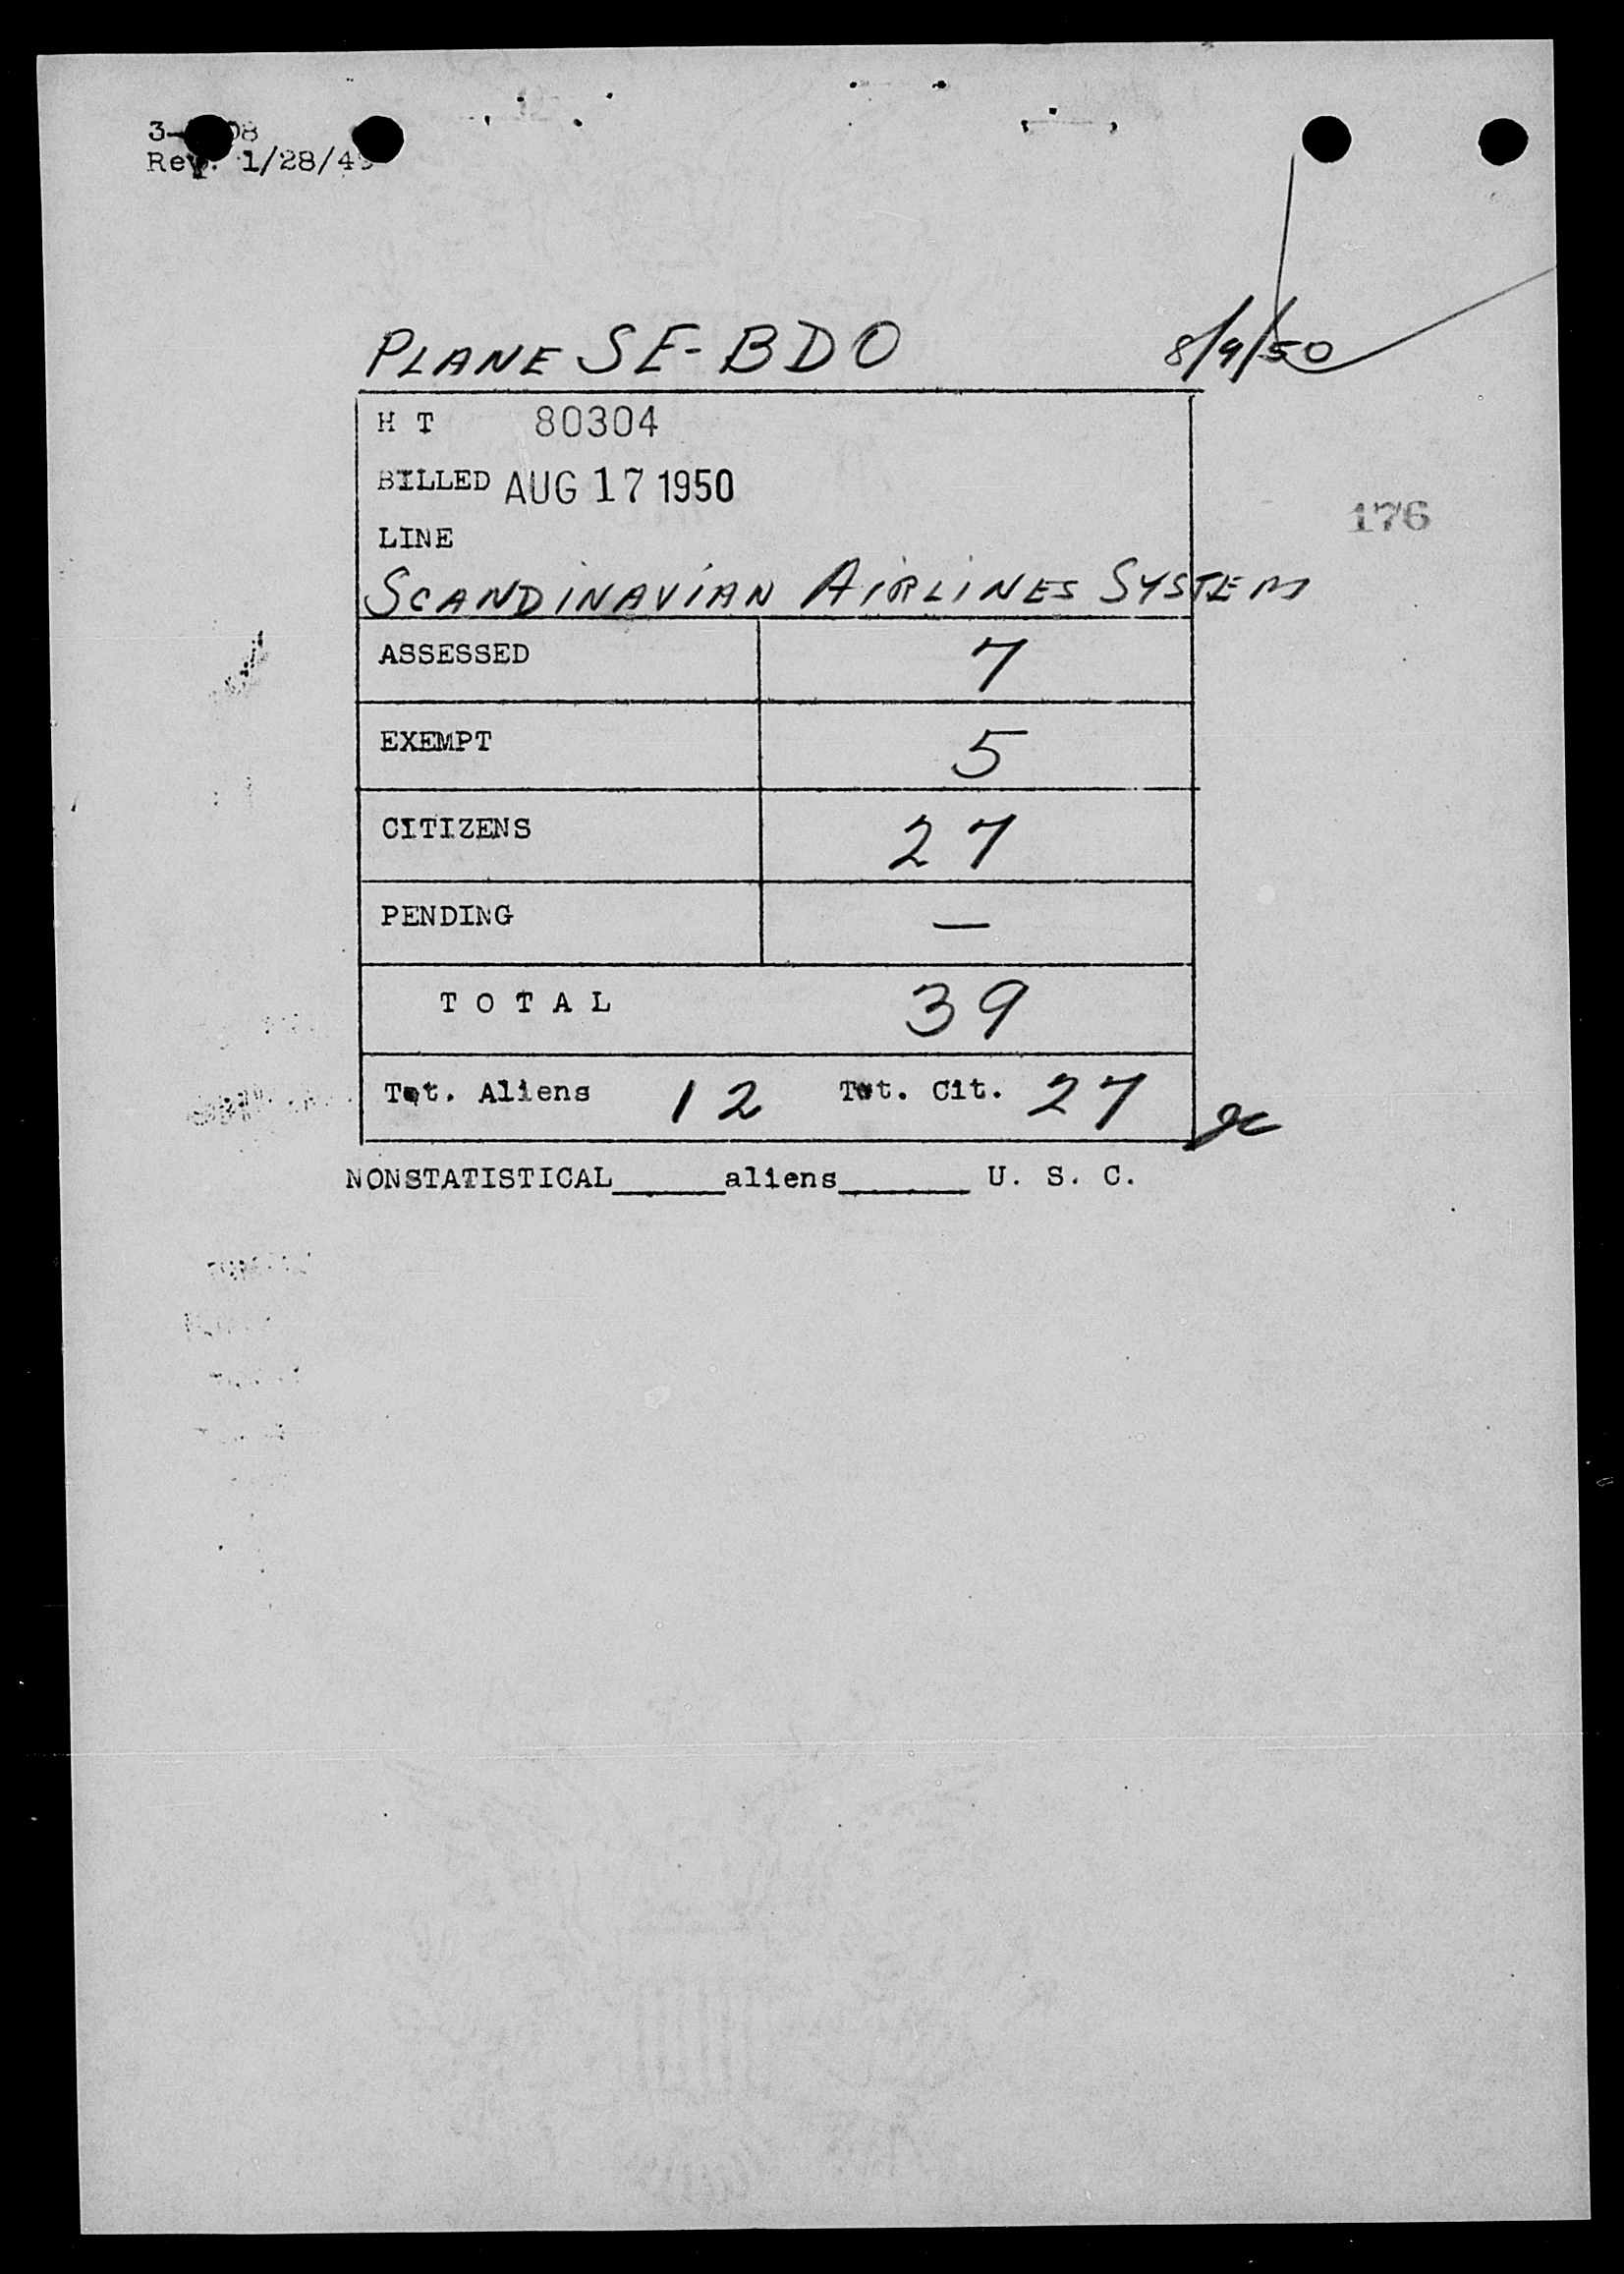 Rev. 1/28/49
PLANE SE-BDO 8/9/50
H T 80304
BILLED AUG 17 1950
176
LINE
SCANDINAVIAN AIRLINES SYSTEM
ASSESSED 7
EXEMPT 5
CITIZENS 27
PENDING —
T O T A L 39
Tot. Aliens 12 Tot. Cit. 27
NONSTATISTICAL______aliens_______ U. S. C.